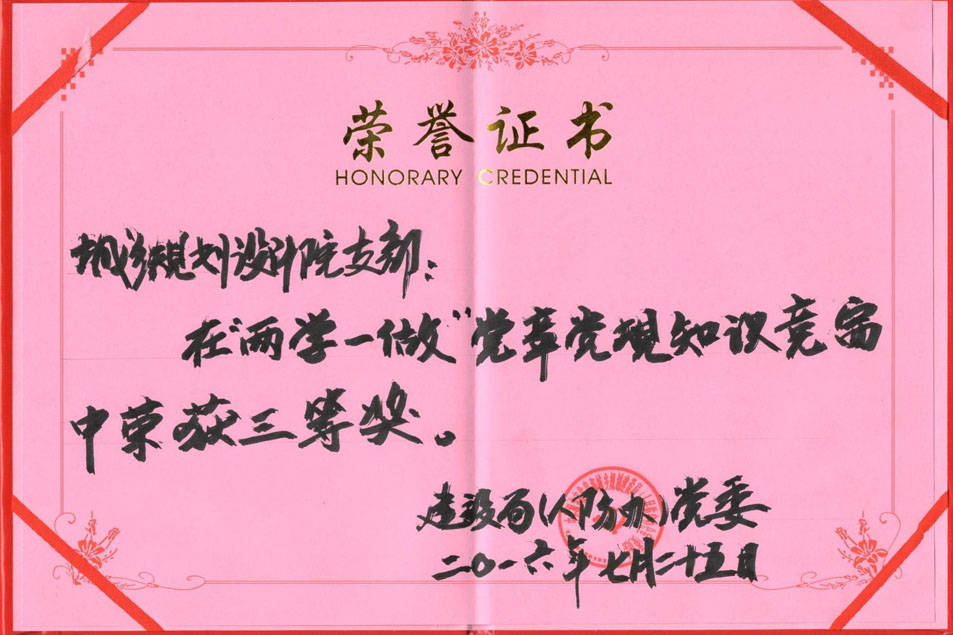 荣誉证书
HONORARY CREDENTIAL
城乡规划设计院支部：
在“两学一做”党章党规知识竞赛
中荣获三等奖。
建设局（人防办）党委
二〇一六年七月二十五日